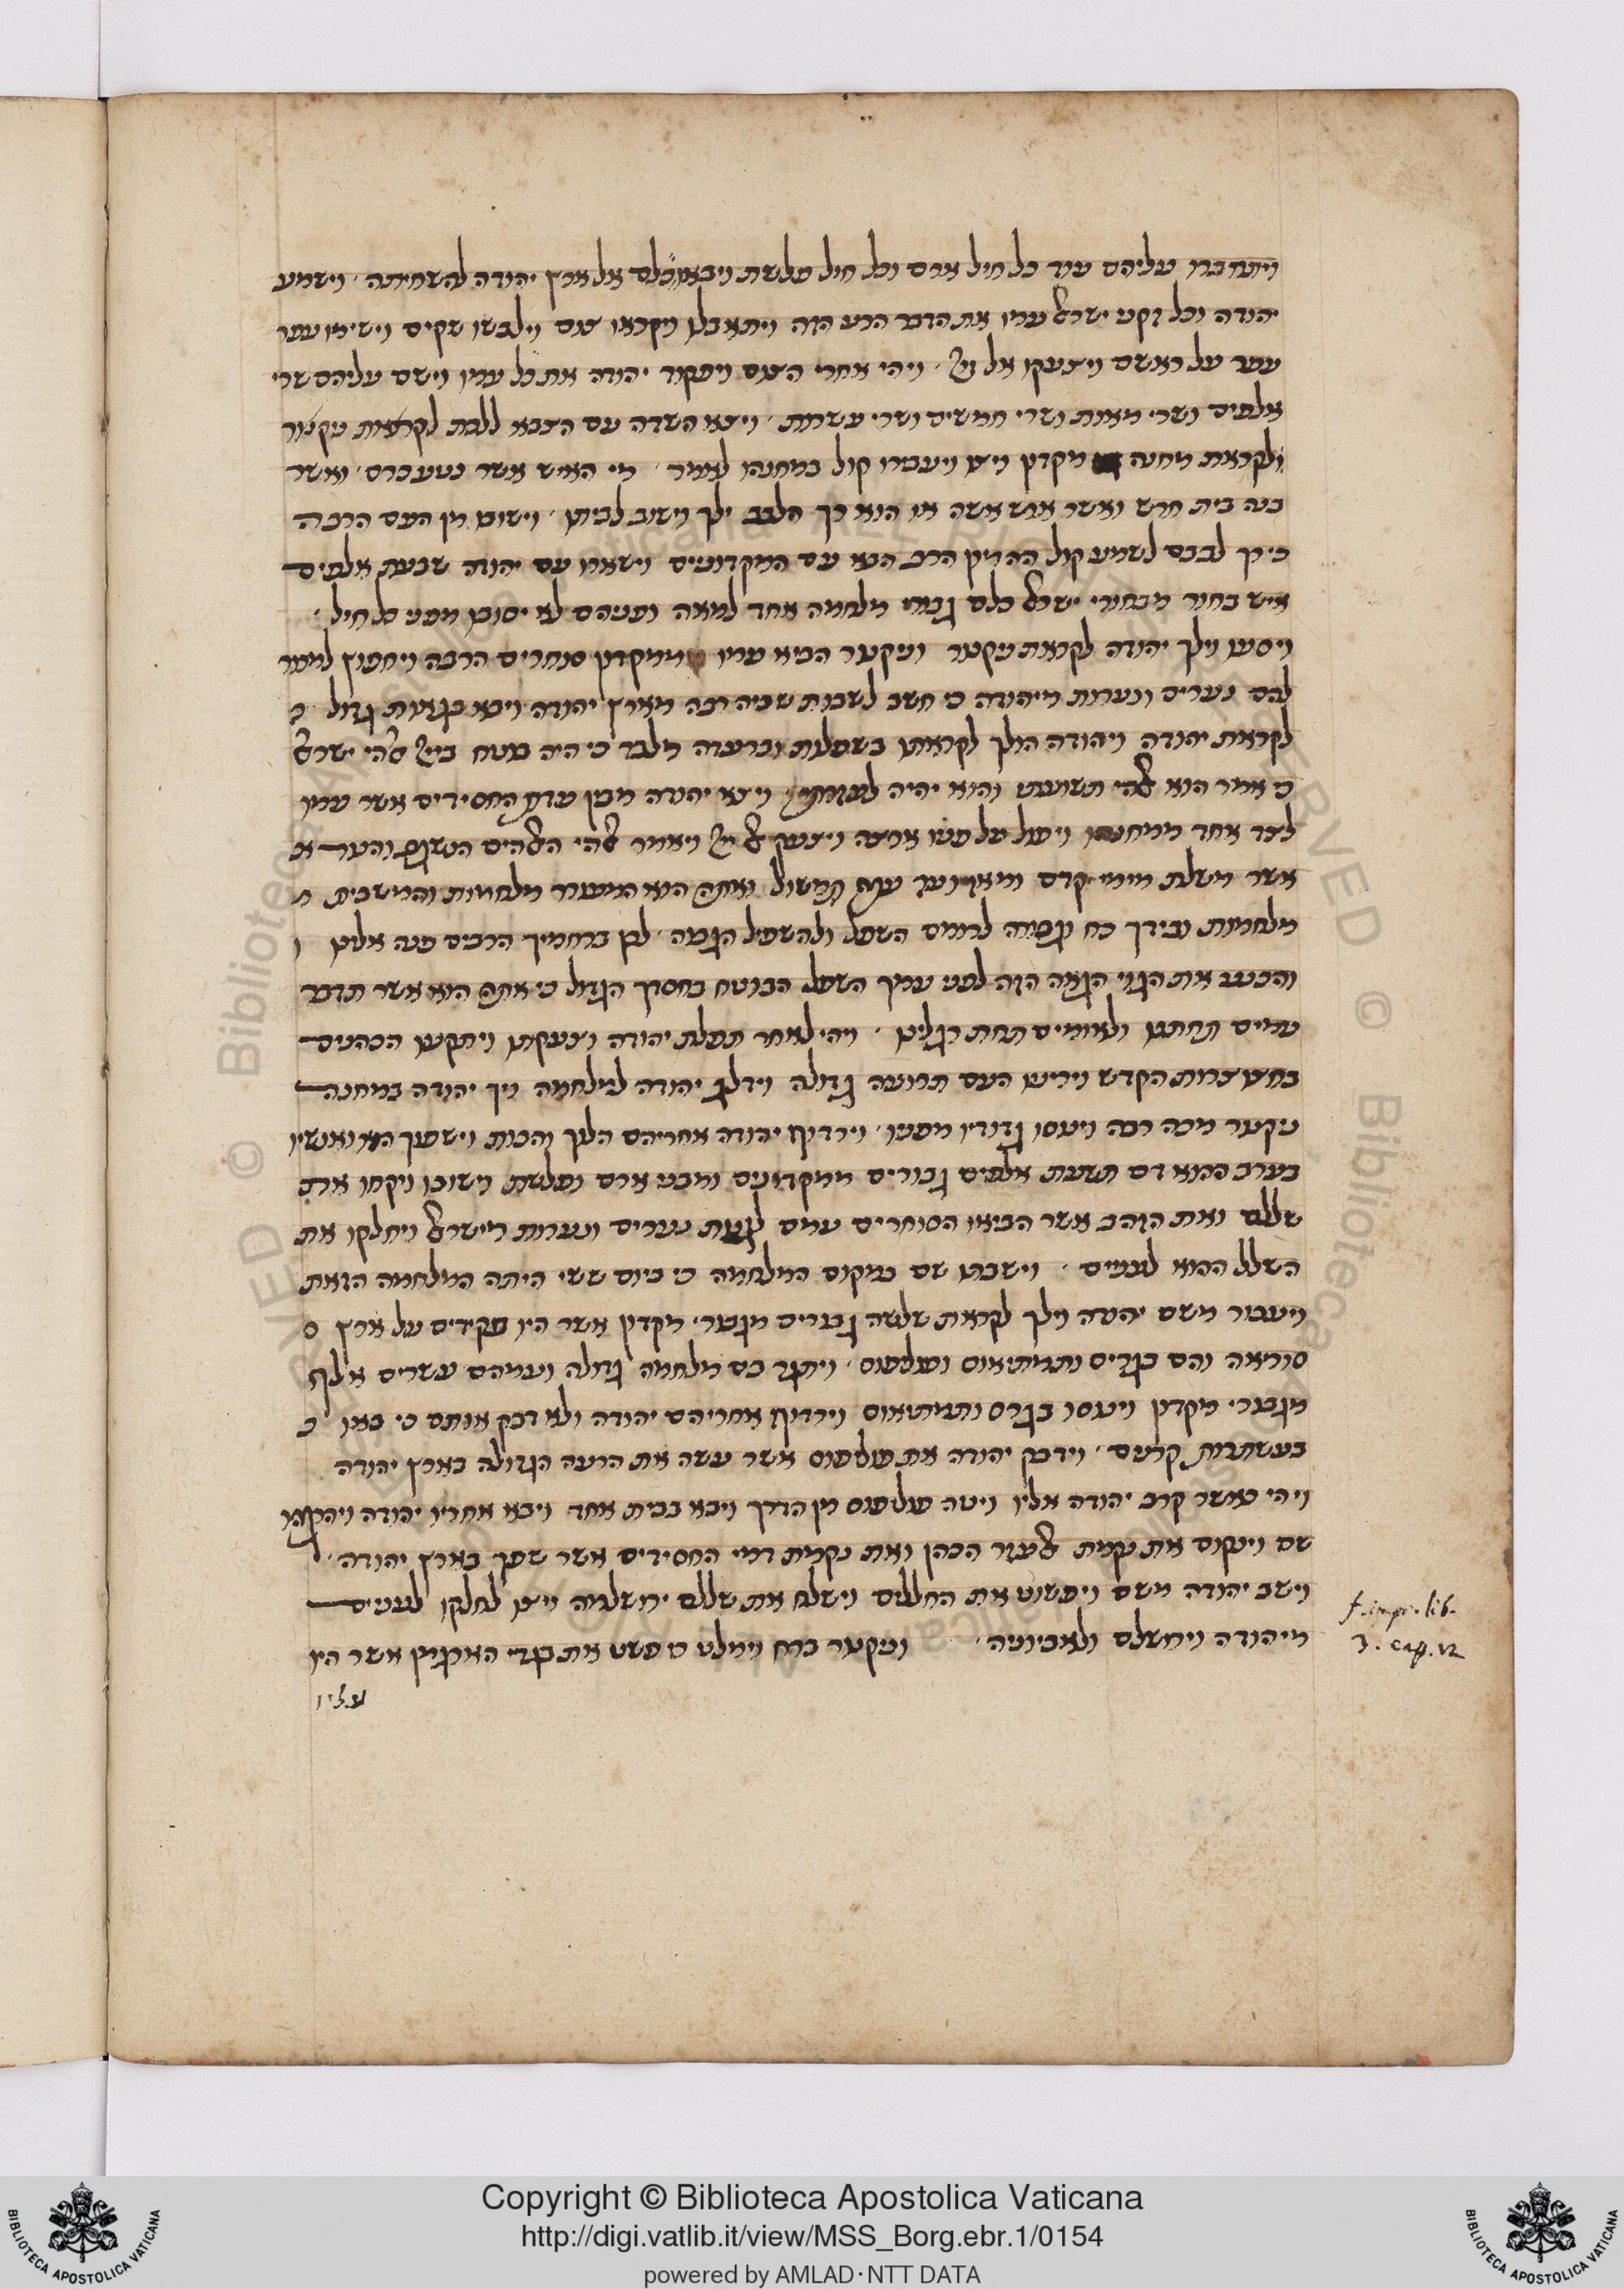 ויתחברו עליהם עוד כל חיל ארם וכל חיל פלשת ויבאו כלם אל ארץ יהודה להשחיתה׳ וישמע
יהודה וכל זקני ישראל עמו את הדבר הרע הזה ויתאבלו ויקראו צום וילבשו שקים וישימו עפר
עפר על ראשם ויצעקו אל ׳ ויהי אחרי הצום ויפקוד יהודה את כל עמו וישם עליהם שרי
אלפים ושרי מאות ושרי חמשים ושרי עשרות׳ ויצא השדה עם הצבא ללכת לקראת ניקנור
ולקראת מחנה מקדון ויעבירו קול במחנהו לאמר׳ מי האיש אשר נטע כרם׳ ואשר
בנה בית חדש ואשר ארש אשה או הוא רך הלבב ילך וישוב לביתו׳ וישובו מן העם הרבה
כי רך לבבם לשמע קול ההמון הרב הבא עם המקדונים וישארו עם יהודה שבעת אלפים
איש בחור מבחורי ישראל כלם גבורי מלחמה אחד למאה ופניהם לא יסובו מפני כל חיל׳
ויסעו וילך יהודה לקראת ניקנור וניקנור הביא עמו ממקדון סוחרים הרבה ויחפוץ למכר
להם נערים ונערות מיהודה כי חשב לשבות שביה רבה מארץ יהודה ויבא בגאות גדול
לקראת יהודה ויהודה הולך לקראתו בשפלות וברעדה מלבד כי היה בוטח ביי אלהי ישראל
כי אמר הוא אלהי תשועתי והוא יהיה לעזרתי׳ ויצא יהודה מבין עדת החסידים אשר עמו
לצד אחד ממחנהו ויפול על פניו ארצה ויצעק אל יי ויאמר אלהי האלהים
אשר משלת מימי קדם ומאין ועד עתה תמשול ואתה הוא המעורר מלחמות והמשבית
מלחמות ובידך כח וגבורה לרומם השפל ולהשפיל הגבוה׳ לכן ברחמיך הרבים פנה אלינו
והכנע את הגוי הגבוה הזה לפני עמך השפל הבוטח בחסדך הגדול כי אתה הוא אשר תדבר
עמים תחתינו ולאומים תחת רגלינו׳ ויהי לאחר תפלת יהודה וצעקתו ויתקעו הכהנים
בחצצרות הקדש ויריעו העם תרועה גדולה וידלג יהודה למלחמה ויך יהודה במחנה
ניקנור מכה רבה וינוסו גדודיו מפניו׳ וירדוף יהודה אחריהם הלוך והכות וישפוך הוא ואנשיו
בערב ההוא דם תשעת אלפים גבורים ממקדונים ומבני ארם ופלשת וישובו ויקחו את
שללם ואת הזהב אשר הביאו הסוחרים עמם לקנות נערים ונערות מישראל ויחלקו את
השלל ההוא לעניים׳ וישבתו שם במקום המלחמה כי ביום ששי היתה המלחמה הזאת
ויעבור משם יהודה וילך לקראת שלשה גבורים מגבורי מקדון אשר היו פקידים על ארץ
סוריאה והם בגרים ותמתיאוס ופולפוס׳ ויתגר בם מלחמה גדולה ועמהם עשרים אלף
מגבורי מקדון וינוסו בגרס ותמתיאוס וירדוף אחריהם יהודה ולא דבק אותם כי באו
בעשתרות קרנים׳ וידבק יהודה את פולפוס אשר עשה את הרעה הגדולה בארץ יהודה
ויהי כאשר קרב יהודה אליו ויטה פולפוס מן הדרך ויבא בבית אחד ויבא אחריו יהודה ויהרגהו
שם וינקום את נקמת אלעזר הכהן ואת נקמת דמי החסידים אשר שפך בארץ יהודה׳
וישב יהודה משם ויפשוט את החללים וישלח את שללם ירושלימה ויצו לחלקו לעניים
מיהודה וירושלם ולאביוניה׳ וניקנור ברח וימלט כי פשט את בגדי הארגמן אשר היו
עליו
f. impr. lib.
3. cap. 12
Copyright © Biblioteca Apostolica Vaticana
http://digi.vatlib.it/view/MSS_Borg.ebr.1/0154
powered by AMLAD·NTT DATA